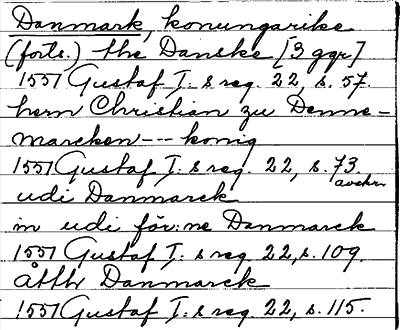 Danmark, konungarike
(forts.) the Danske [3 ggr]
1551 Gustaf I:s reg. 22, s. 57.
hern Christian zu Denne-
marcken --- konig
1551 Gustaf I:s reg. 22, s. 73.
avskr.
udi Danmarck
in udi för:ne Danmarck
1551 Gustaf I:s reg. 22, s. 109.
åtth Danmarck
1551 Gustaf I:s reg. 22, s. 115.